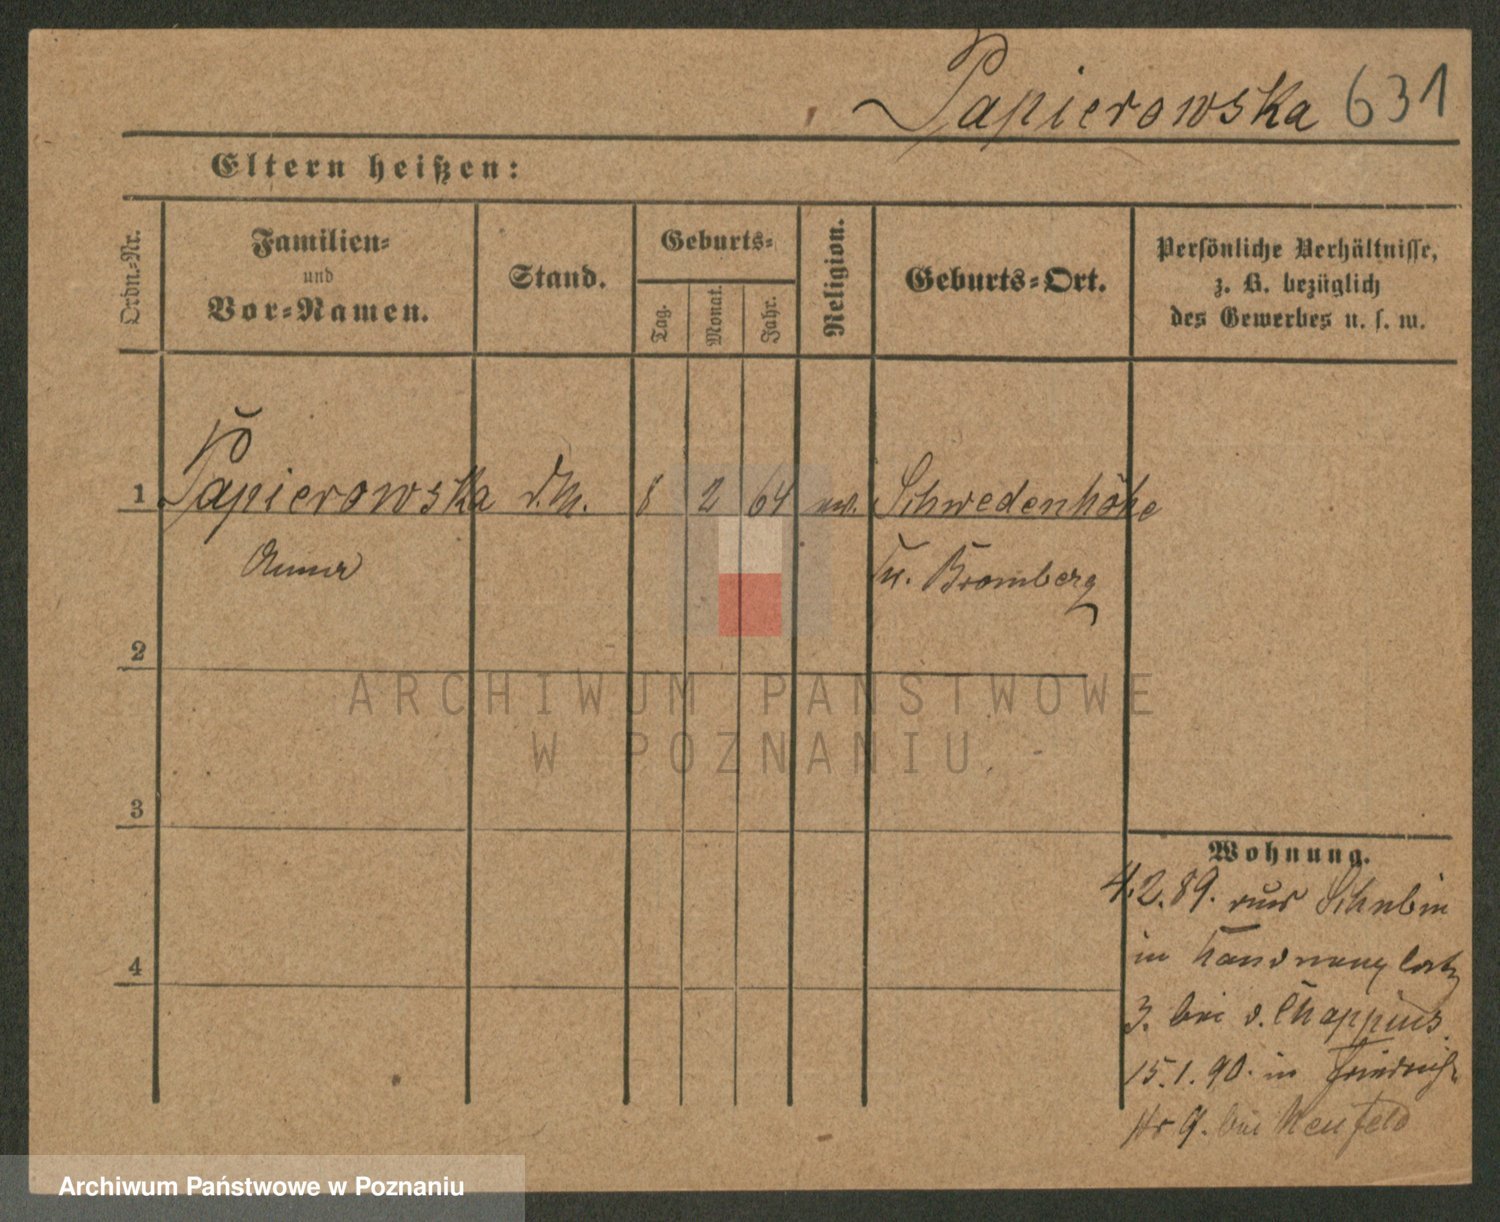 Papierowska 631
Eltern heißen:
Ordn.-Nr.
Familien-
und
Vor-Namen.
Stand.
Geburts-
Tag.
Monat.
Jahr.
Religion.
Geburts-Ort.
Persönliche Verhältnisse,
z. B. bezüglich
des Gewerbes u. s. w.
1 Papierowska d.M. 8 2 64 ev. Schwedenhöhe
Anna Kr. Bromberg
2
3
4
Wohnung.
4.2.89. aus Schubin
in Kanonenplatz
3. bei v. Chappuis
15.1.90. in Friedrich
Str 9. bei Neufeld
ARCHIWUM PAŃSTWOWE
W POZNANIU
Archiwum Państwowe w Poznaniu